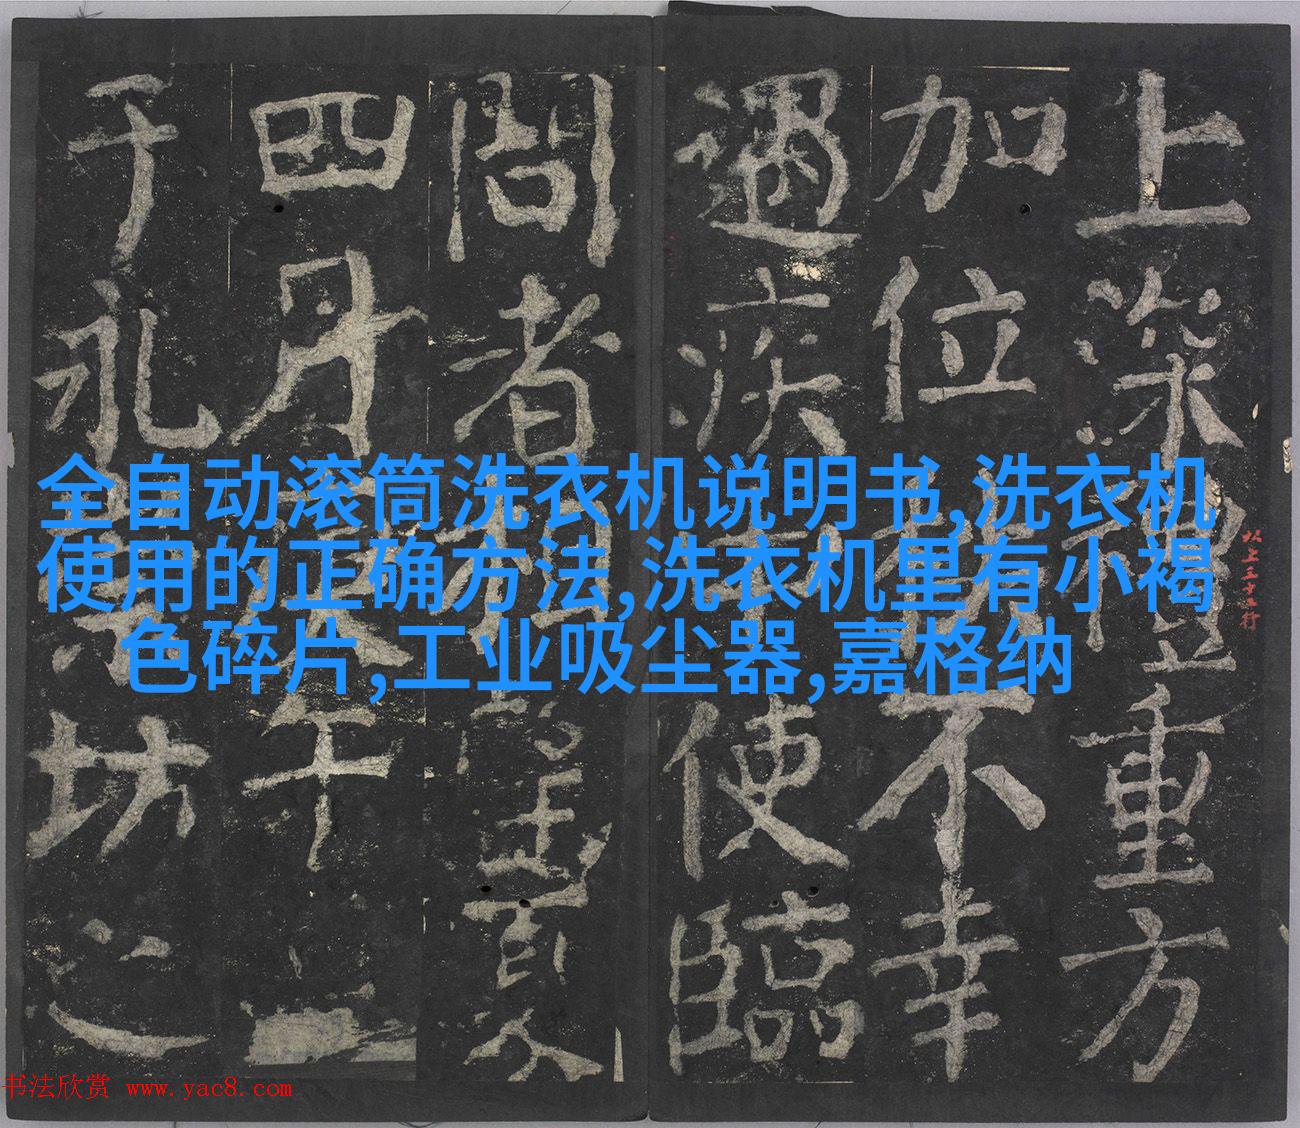 上深禮重方
加位不幸
遇疾使臨
問者相望夏
四月午
于永坊之
全自动滚筒洗衣机说明书,洗衣机
使用的正确方法,洗衣机里有小褐
色碎片,工业吸尘器,嘉格纳
书法欣赏 www.yac8.com